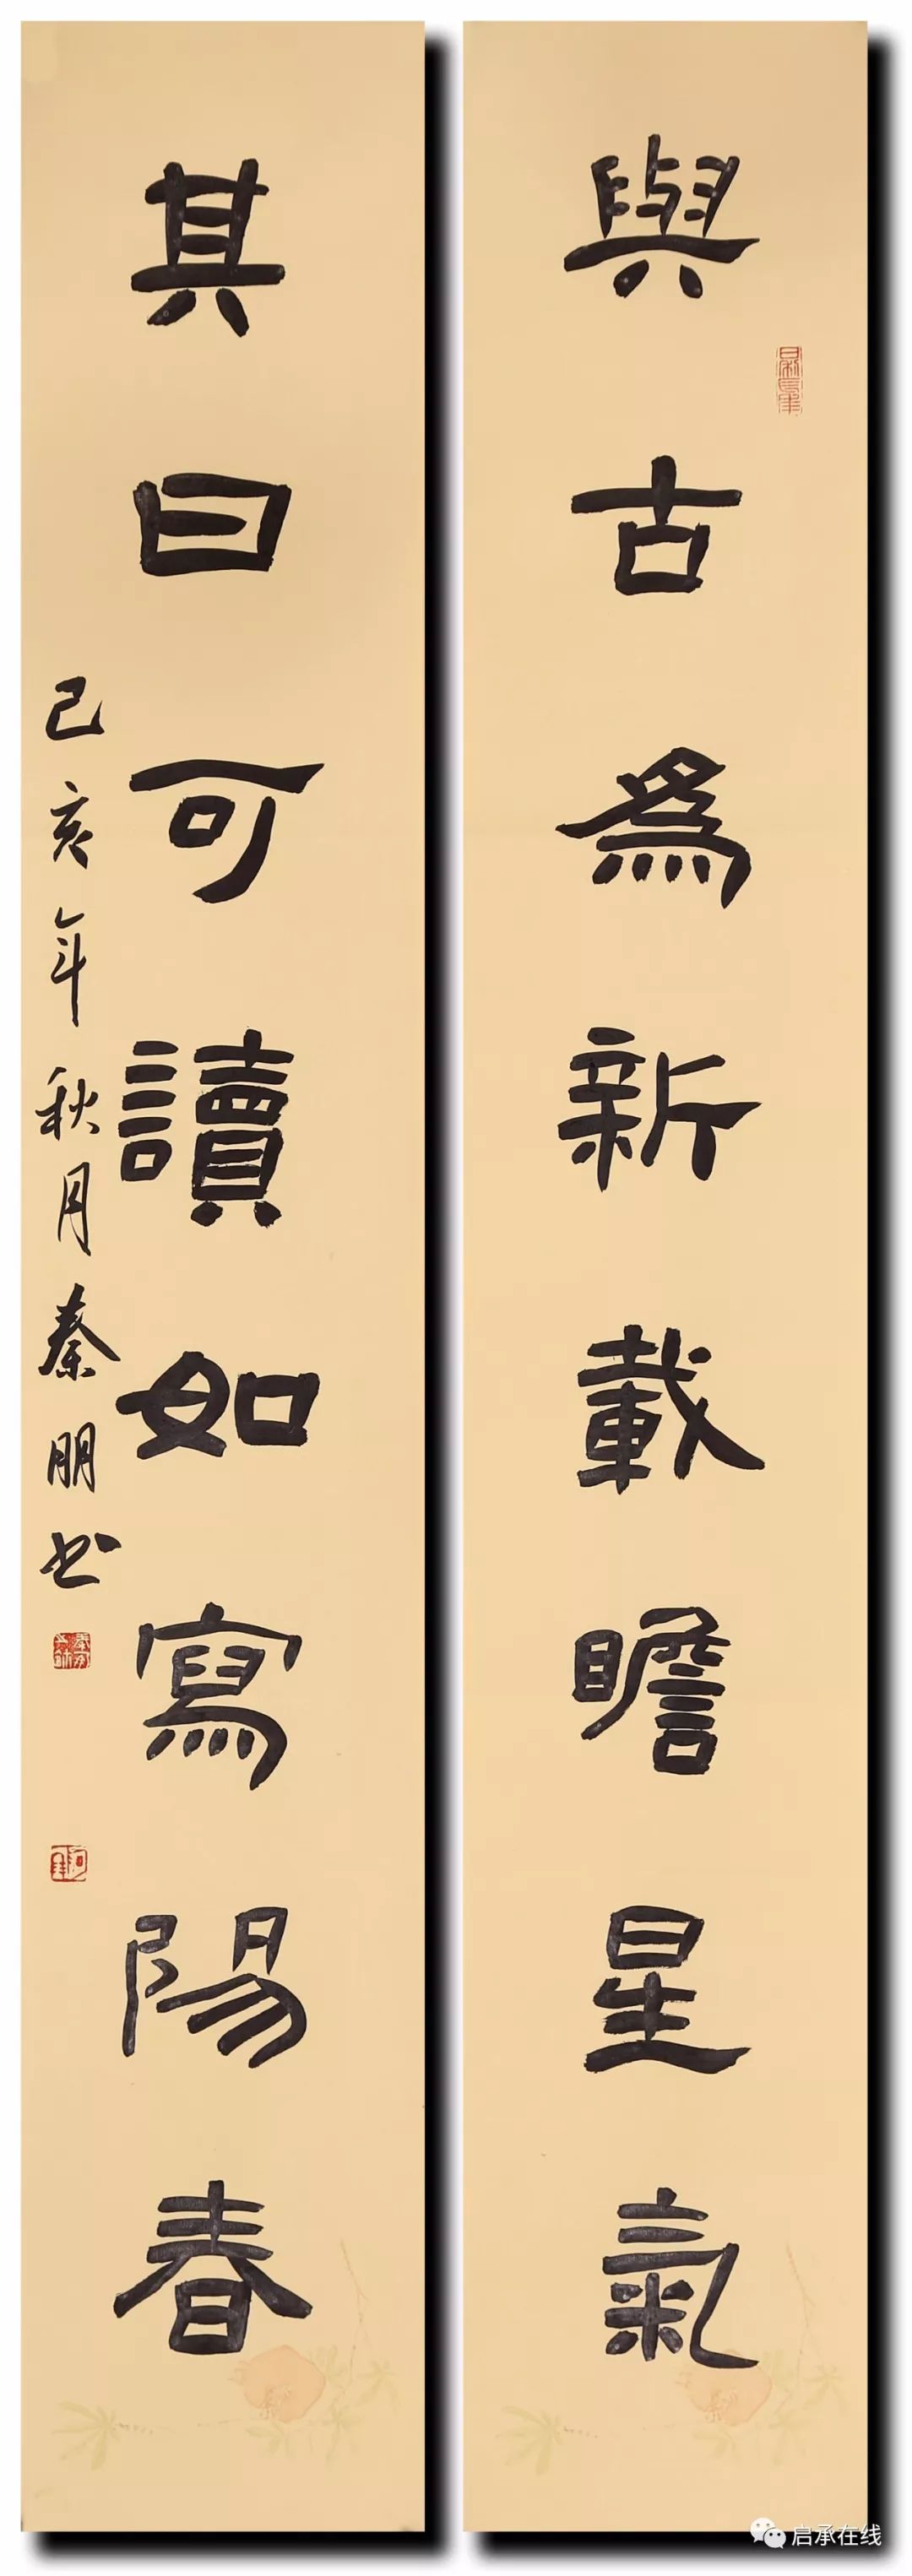 與古爲新載瞻星氣
其曰可讀如寫陽春
己亥年秋月秦朋书
启承在线